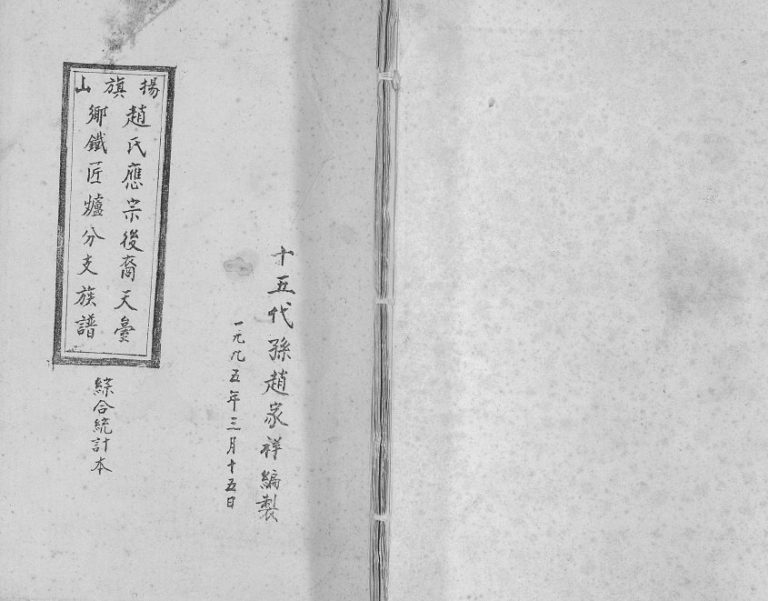 揚旗山
趙氏應宗後裔天臺
鄉鐵匠爐分支族譜
綜合統計本
十五代孫趙家祥編製
一九九五年三月十五日